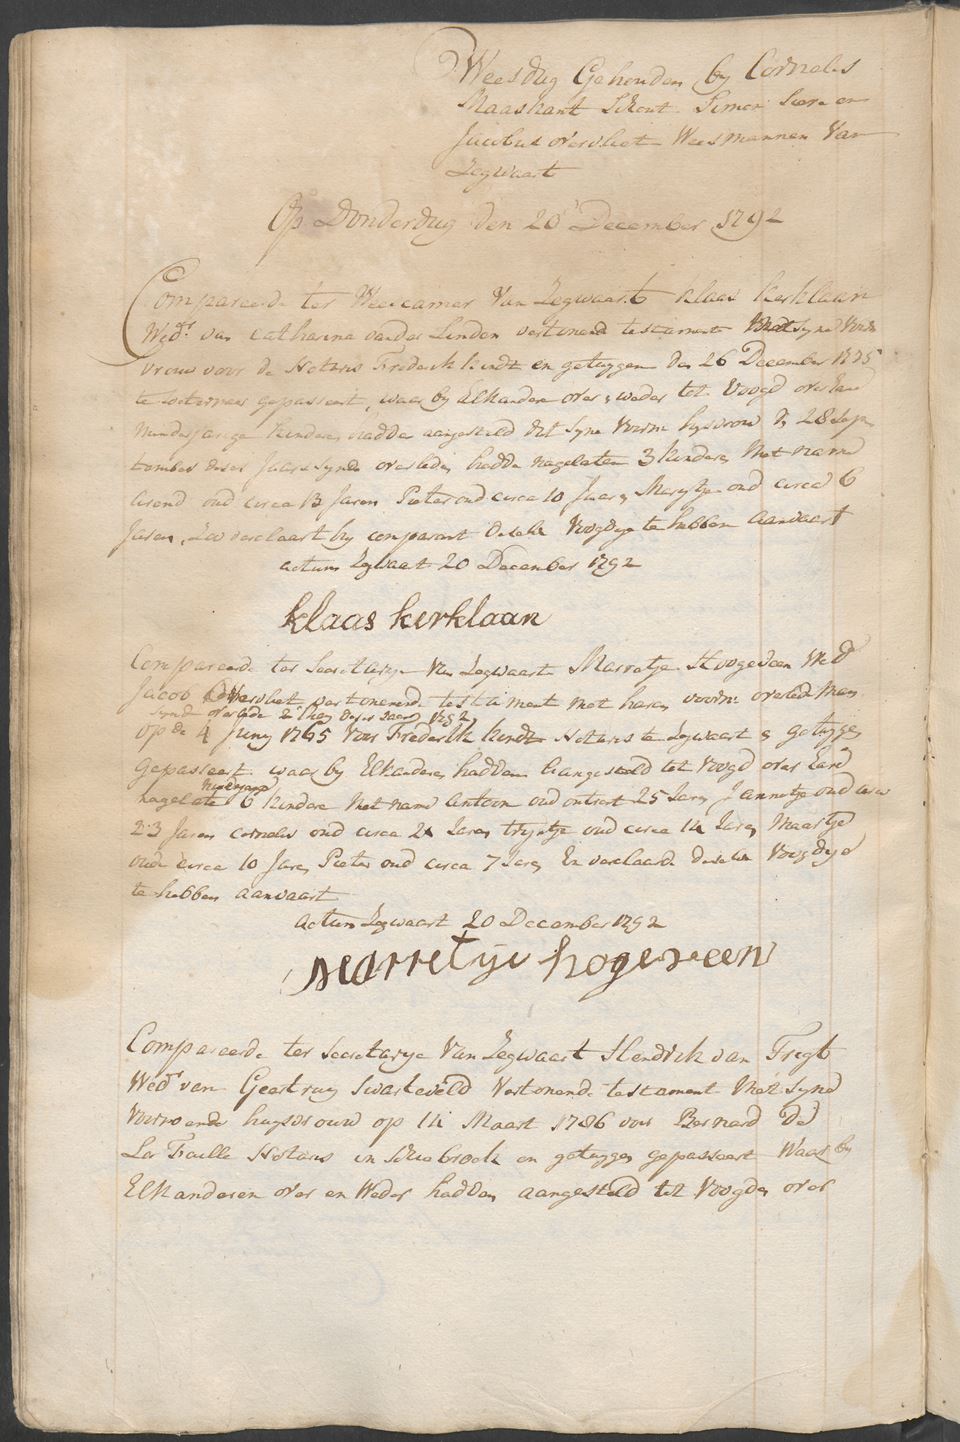 Weesdag Gehouden by Cornelis
Maaskant Schout Simon
Jacobus overvliet Weesmannen Van
Zegwaart
Op Donderdag den 20 December 1792
Compareerde ter Weescamer Van Zegwaart Klaas Kerklaan
Wedr van Catharina vander Linden vertonend testament Met syne Voorn
vrouw voor de Notaris Frederik Kindt en getuygen den 26 December 1775
te Soetermeer gepasseert, waar by Elkandere over & weder tot Voogd over Hare
minderjarige kindere hadde aangesteld dat syne Voorn huysvrou d 28 Sep
tember deses Jaars synde overleden hadde nagelaten 3 kindere Met name
Arend oud circa 13 Jaren Pieter oud circa 10 Jaar, Marytje oud circa 6
Jaren, Zoo verclaart hy comparant deselve Voogdye te hebben aanvaart
actum Zegwaart 20 December 1792
klaas kerklaan
Compareerde ter Secretarye Van Zegwaart Marretje Hoogeveen Wed
Jacob Overvliet vertonende testament met haren voorn overlede Man
synde overlede 2 deses Jaars 1792
op de 4 Juny 1765 Voor Frederik Kindt Notaris te Zegwaart & getuyge
gepasseert waar by Elkanderen hadden Aangesteld tot Voogd over Hare
minderjarige
nagelate 6 kindere Met name Antoon oud ontrent 25 Jaren Jannetje oud circa
23 Jaren Cornelis oud circa 21 Jaren tryntje oud circa 14 Jaren Maartje
oud circa 10 Jaren Pieter oud circa 7 Jaren En verclaarde deselve Voogdye
te hebben aanvaart
actum Zegwaart 20 December 1792
Marretije hogeveen
Compareerde ter Secretarye Van Zegwaart Hendrik van Tregt
Wedr van Geertruy Swarteveld Vertonende testament Met syne
Voornoemde huysvrouw op 14 Maart 1786 voor Bernard De
La Faille Notaris in Schiebroek en getuygen gepasseert Waar by
Elkanderen over en Weder hadden aangesteld tot Voogden over